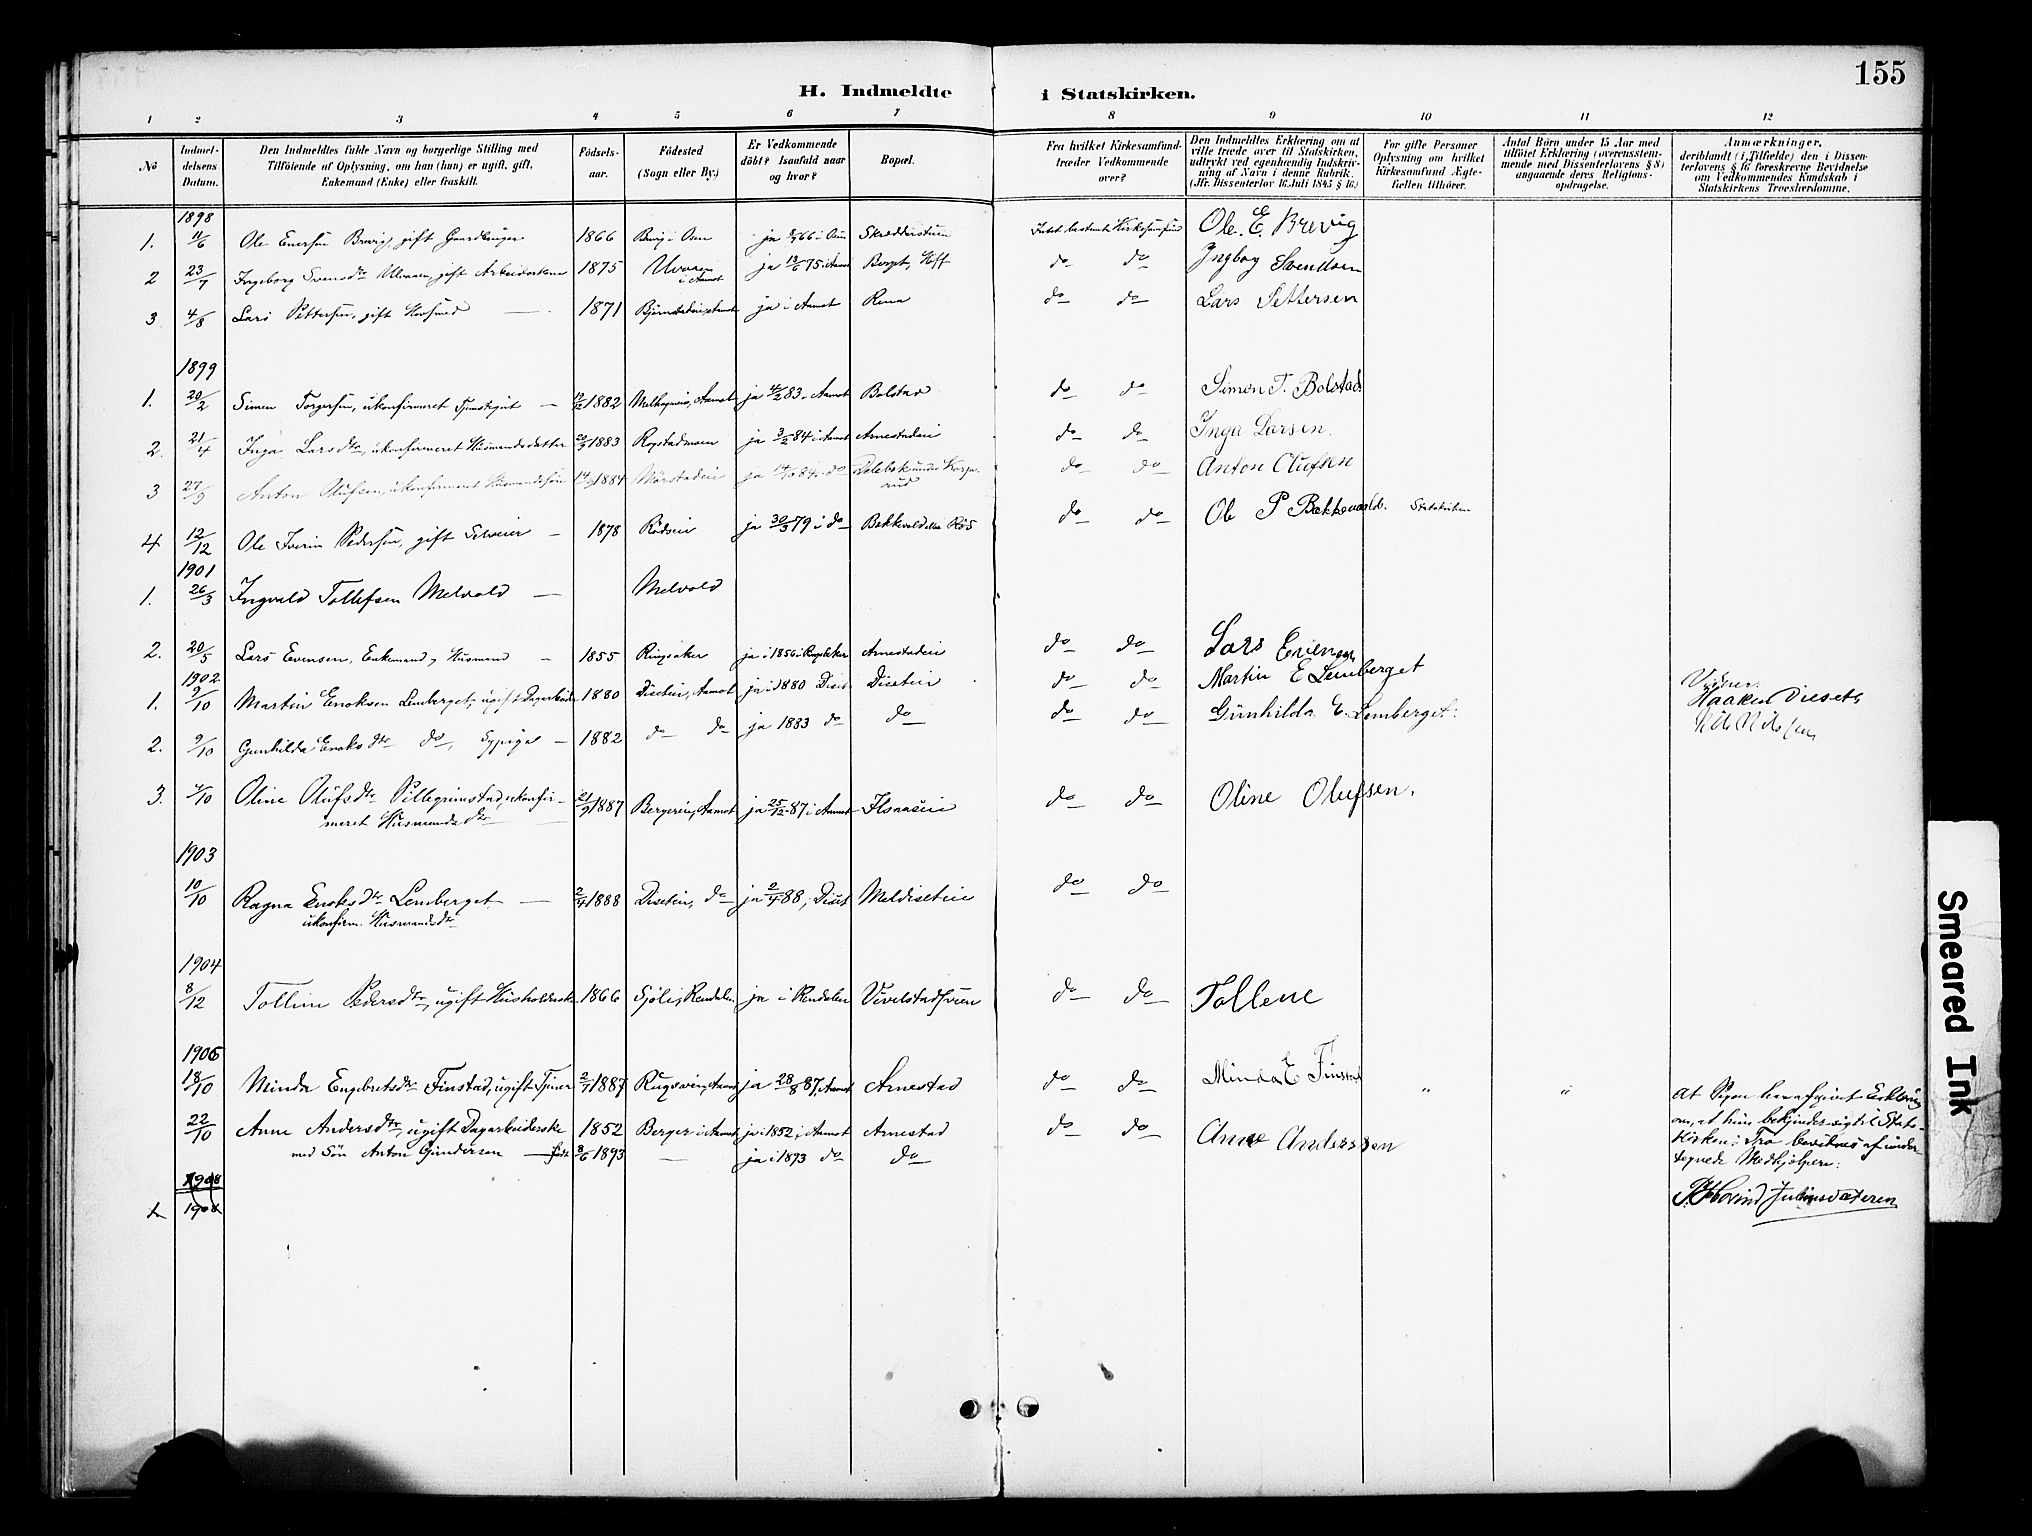 155
H. Indmeldte i Statskirken.
1 2 3 4 5 6 7 8 9 10 11 12
No
Indmel-
delsens
Datum.
Den Indmeldtes fulde Navn og borgerlige Stilling med
Tilföiende af Oplysning, om han (hun) er ugift, gift,
Enkemand (Enke) eller fraskilt.
Födsels-
aar.
Födested
(Sogn eller By.)
Er Vedkommende
döbt? Isaafald naar
og hvor?
Bopæl.
Fra hvilket Kirkesamfund
træder Vedkommende
over?
Den Indmeldtes Erklæring om at
ville træde over til Statskirken,
udtrykt ved egenhændig Indskriv-
ning af Navn i denne Rubrik.
(Jfr. Dissenterlov 16. Juli 1845 § 16.)
For gifte Personer
Oplysning om hvilket
Kirkesamfund Ægte-
fællen tilhörer.
Antal Börn under 15 Aar med
tilföiet Erklæring (overensstem-
mende med Dissenterlovens § 8)
angaaende deres Religions-
opdragelse.
Anmærkninger,
deriblandt (i Tilfælde) den i Dissen-
terlovens § 16 foreskrevne Bevidnelse
om Vedkommendes Kundskab i
Statskirkens Troeslærdomme.
1898
1. 11/6 Ole Enersen Brevig, gift Gaardbruger 1866 Brevig i Osen ja 66 i Osen Skrædderstuen Intet bestemt Kirkesamfund Ole. E. Brevig
2 23/7 Ingeborg Svensdtr Ulvaaen, gift Arbeiderkone 1875 Ulvaaen i Aamot ja 13/6 75 i Aamot Berget, Hoff do do Ingbog Svendsen
3 4/8 Lars Pettersen, gift 1871 ja i Aamot Rena do do Lars Pettersen
1899
1. 20/2 Simen Torgersen, ukonfirmeret Tjenstegut 1882 Aamot ja 4/2 83 Aamot Bolstad do do Simen T. Bolstad
2. 21/4 Inga Larsdtr, ukonfirmeret Husmandsdatter 1883 Ropstadmoen ja 3/2 84 i Aamot Arnestadeie do do Inga Larsen.
3 27/9 Anton Olufsen, ukonfirmeret Husmandssön 1884 Mörstadeie ja 84 do do do Anton Olufsen
4 12/12 Ole Iverin Pedersen, gift Selveier 1878 Rödseie ja 30/3 79 i do Bekkevold do do Ole P Bekkevold. Statskirken
1901
1. 26/3 Ingvald Tollefsen Melvold Melvold
2. 20/5 Lars Evensen, Enkemand, Husmand 1855 Ringsaker ja i 1856 i Ringsaker Arnestadeie do do Lars Evensen
1902
1. 9/10 Martin Enoksen Lemberget, ugift Dagarbeider 1880 Diseteie, Aamot ja i 1880 Diset Diseteie do do Martin E Lemberget
2. 9/10 Gunhilda Enoksdtr do, Sypige 1882 do do ja 1883 do do do do Gunhilda E. Lemberget.
Haaken Diseth
Nils Nilssen
3. 9/10 Oline Olufsdtr Pellegrimstad, ukonfir-
meret Husmandsdtr 1887 Bergereie, Aamot ja 25/12 87 i Aamot Ilsaaseie do do Oline Olufsen.
1903
10/10 Ragna Enoksdtr Lemberget
ukonfirm. Husmandsdtr 2/4 1888 Diseteie, do ja 2/4 88 i Diset Meldiseteie do do
1904
8/12 Tolline Pedersdtr, ugift Husholderske 1866 Sjöli, Rendalen ja i Rendalen do do Tollene
1906
18/10 Minda Engebretsdtr Finstad, ugift Tjener 1887 Aamot ja 28/8 87, Aamot Arnestad do do Minda E Finstad " "
22/10 Anne Andersdtr, ugift Dagarbeiderske 1852 Berger i Aamot ja i 1852 i Aamot Arnestad do do Anne Anderssen
med Sön Anton Gundersen födt 3/6 1893 — ja i 1893 do do
At Pigen har afgivet Erklæring
om, at hun bekjender sig til Stats-
kirkens Tro bevidnes af under-
tegnede Medhjælpere:
P. Hovind Julius Væteren
1908
1908
Smeared Ink